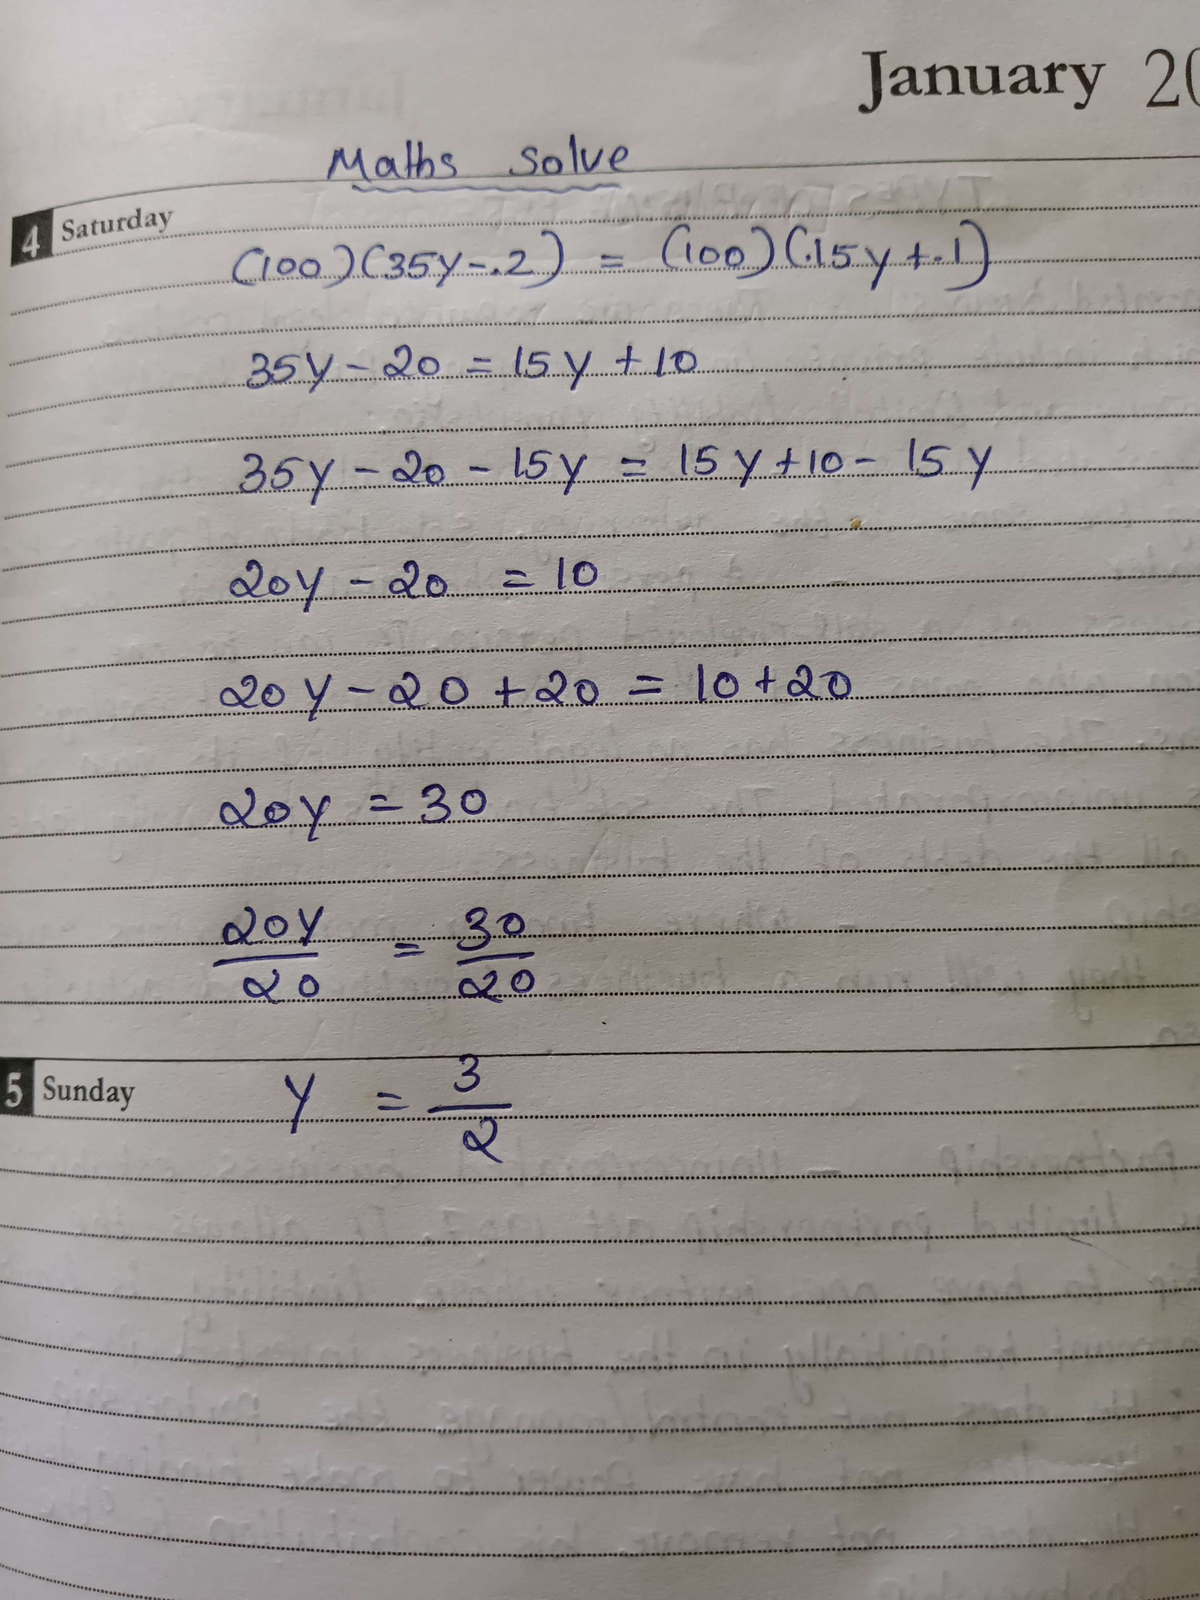 January 20
Maths Solve
4 Saturday
(100)(35y-.2) = (100)(.15y+.1)
35y - 20 = 15y + 10
35y - 20 - 15y = 15y + 10 - 15y
20y - 20 = 10
20y - 20 + 20 = 10 + 20
20y = 30
20y/20 = 30/20
5 Sunday
y = 3/2